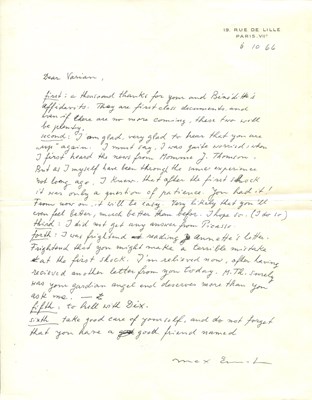 19, RUE DE LILLE
PARIS. VIIe
6 10 66
Dear Varian,
first: a thousand thanks for your and Bénédite's
affidavits. They are first class documents and
even if there are no more coming, these two will
be plenty.
second: I am glad, very glad to hear that you are
up" again. I must say, I was quite worried when
I first heard the news from Mommie J. Thomson.
But as I myself have been through the same experience
not long ago, I knew that after the first shock
it was only a question of patience. You had it!
From now on, it will be easy. Very likely that you'll
even feel better, much better than before. I hope so. (I do so)
third: I did not get any answer from Picasso
forth: I was frightend reading Annette's letter.
Frightend that you might make a terrible mistake
at the first shock. I'm relieved now, after having
received another letter from you today. M.Th. surely
was your gardian angel and deserves more than you
ask me:
fifth, to hell with Dix.
sixth take good care of yourself, and do not forget
that you have a good friend named
max Ernst